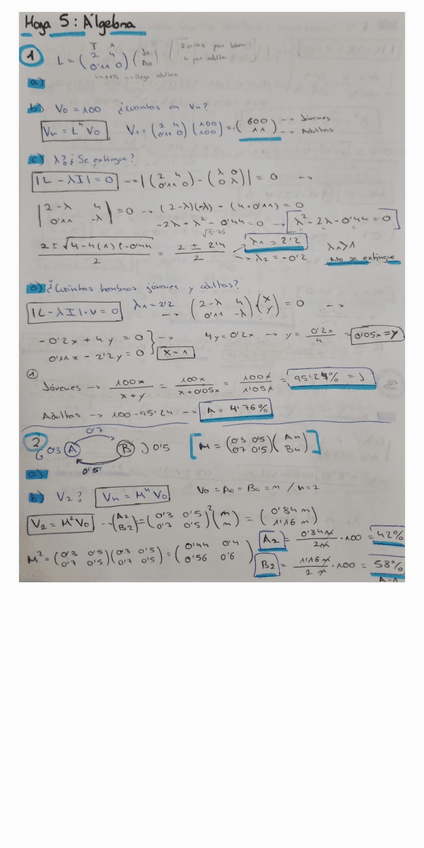 Hoja 5: Álgebra
① L = ( 2 4 / 0'11 0 ) ( J0 / A0 )
a)
b) V0 = 100 ¿Cuántos en Vn?
Vn = L^n V0 V1 = ( 2 4 / 0'11 0 ) ( 100 / 100 ) = ( 600 / 11 ) --> Jóvenes --> Adultos
c) λ? ¿Se extingue?
|L - λI| = 0 --> | ( 2 4 / 0'11 0 ) - ( λ 0 / 0 λ ) | = 0 -->
| 2-λ 4 / 0'11 -λ | = 0 --> (2-λ)(-λ) - (4·0'11) = 0
-2λ + λ² - 0'44 = 0 --> λ² - 2λ - 0'44 = 0
√5'76
2 ± √4-4(1)(-0'44) / 2 = 2 ± 2'4 / 2 --> λ1 = 2'2 λ1 > 1
--> λ2 = -0'2 No se extingue
d) ¿Cuántas hembras jóvenes y adultos?
|L - λI|·v = 0 λ1 = 2'2 --> ( 2-λ 4 / 0'11 -λ ) ( x / y ) = 0 -->
-0'2x + 4y = 0 --> 4y = 0'2x --> y = 0'2x / 4 = 0'05x = y
0'11x - 2'2y = 0 x = 1
①
Jóvenes --> 100x / x+y = 100x / x+0'05x = 100x / 1'05x = 95'24% = J
Adultos --> 100 - 95'24 --> A = 4'76%
② 0'7
0'3 A B 0'5 [ M = ( 0'3 0'5 / 0'7 0'5 ) ( An / Bn ) ]
0'5
a)
b) V2? Vn = M^n V0 V0 = A0 = B0 = m / n = 2
V2 = M² V0 --> ( A2 / B2 ) = ( 0'3 0'5 / 0'7 0'5 )² ( m / m ) = ( 0'84 m / 1'16 m )
M² = ( 0'3 0'5 / 0'7 0'5 ) ( 0'3 0'5 / 0'7 0'5 ) = ( 0'44 0'4 / 0'56 0'6 ) A2 = 0'84m / 2m · 100 = 42%
B2 = 1'16m / 2m · 100 = 58%